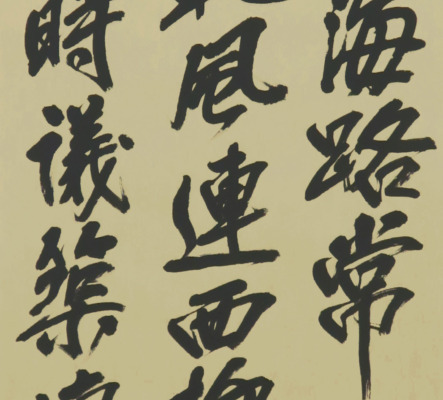 海路常
風連西
時議築